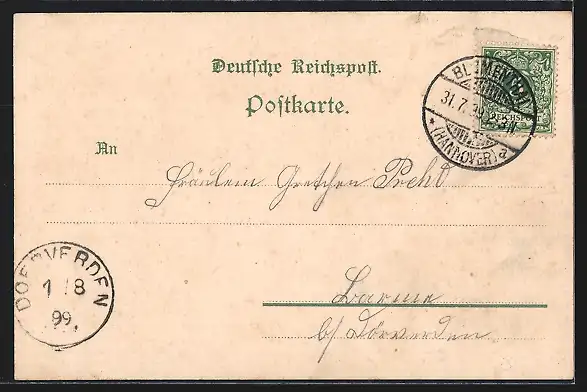 Deutsche Reichspost.
Postkarte.
BLUMENTHAL
31.7.99
* (HANNOVER) a
REICHSPOST
An
Fräulein Gretchen Prehl
DOERVERDEN
1/8
99
Barme
b/ Dörverden